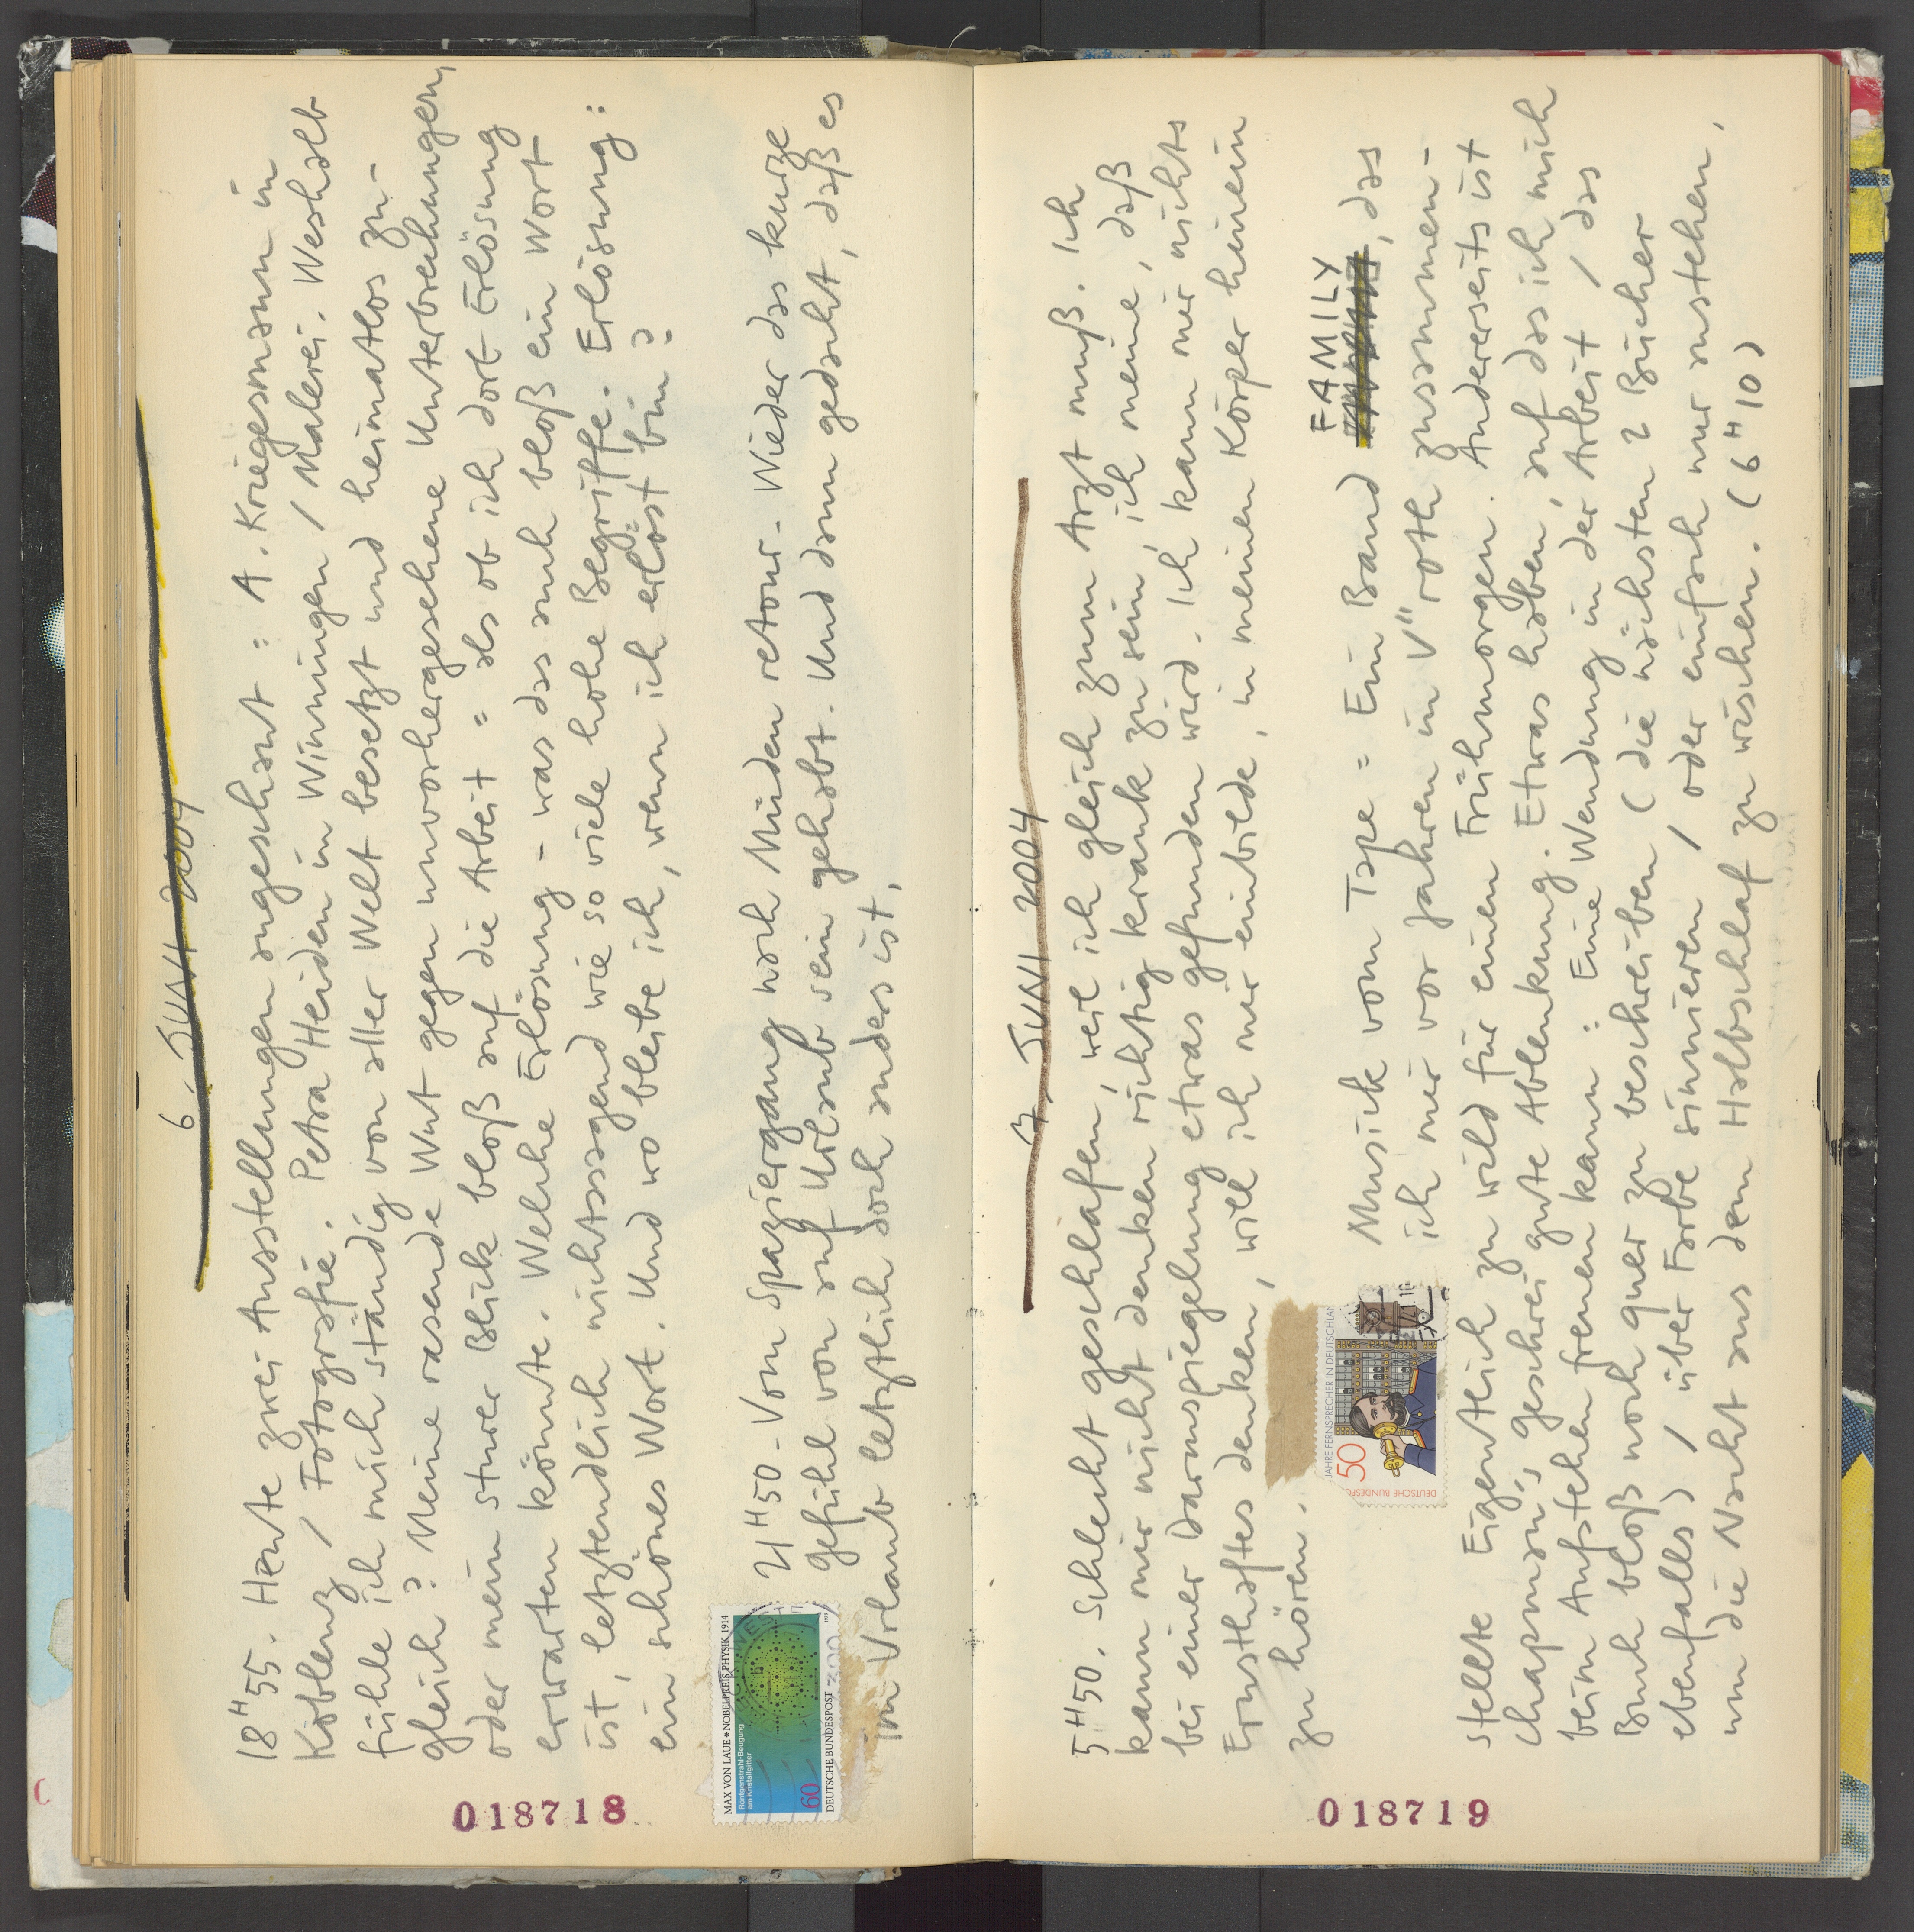 6. JUNI 2004
18H55. Heute zwei Ausstellungen angeschaut = A. Kriegesmann in
Koblenz / Fotografie. Petra Heiden in Winningen / Malerei. Weshalb
fühle ich mich ständig von aller Welt besetzt und heimatlos zu-
gleich? Meine rasende Wut gegen unvorhergesehene Unterbrechungen,
oder mein sturer Blick bloß auf die Arbeit = als ob ich dort Erlösung
erwarten könnte. Welche Erlösung - was das auch bloß ein Wort
ist, letztendlich nichtssagend wie so viele hohe Begriffe. Erlösung:
ein schönes Wort. Und wo bleibe ich, wenn ich erlöst bin?
21H50 - Vom Spaziergang nach Müden retour - Wieder das kurze
gefühl von auf Urlaub sein gehabt. Und dann gedacht, daß es
im Urlaub letztlich doch anders ist.
MAX VON LAUE * NOBELPREIS PHYSIK 1914
Röntgenstrahl-Beugung
am Kristallgitter
60
DEUTSCHE BUNDESPOST
018718
7. JUNI 2004
5H50. Schlecht geschlafen, weil ich gleich zum Arzt muß. Ich
kann mir nicht denken richtig krank zu sein, ich meine, daß
bei einer Darmspiegelung etwas gefunden wird. Ich kann mir nichts
Ernsthaftes denken, will ich mir einbilde, in meinen Körper hinein
zu hören.
Musik vom Tape = Ein Band FAMILY, das
ich mir vor Jahren in V" roth zusammen-
stellte Eigentlich zu wild für einen Frühmorgen. Andererseits ist
Chapman's geschrei gute Ablenkung. Etwas haben, auf das ich mich
beim Aufstehen freuen kann = Eine Wendung in der Arbeit / das
Buch bloß noch quer zu beschreiben (die nächsten 2 Bücher
ebenfalls) / über Farbe sinnieren / oder einfach nur aufstehen,
um die Nacht aus dem Halbschlaf zu wischen. (6H10)
JAHRE FERNSPRECHER IN DEUTSCHLAN
50
DEUTSCHE BUNDESPO
018719